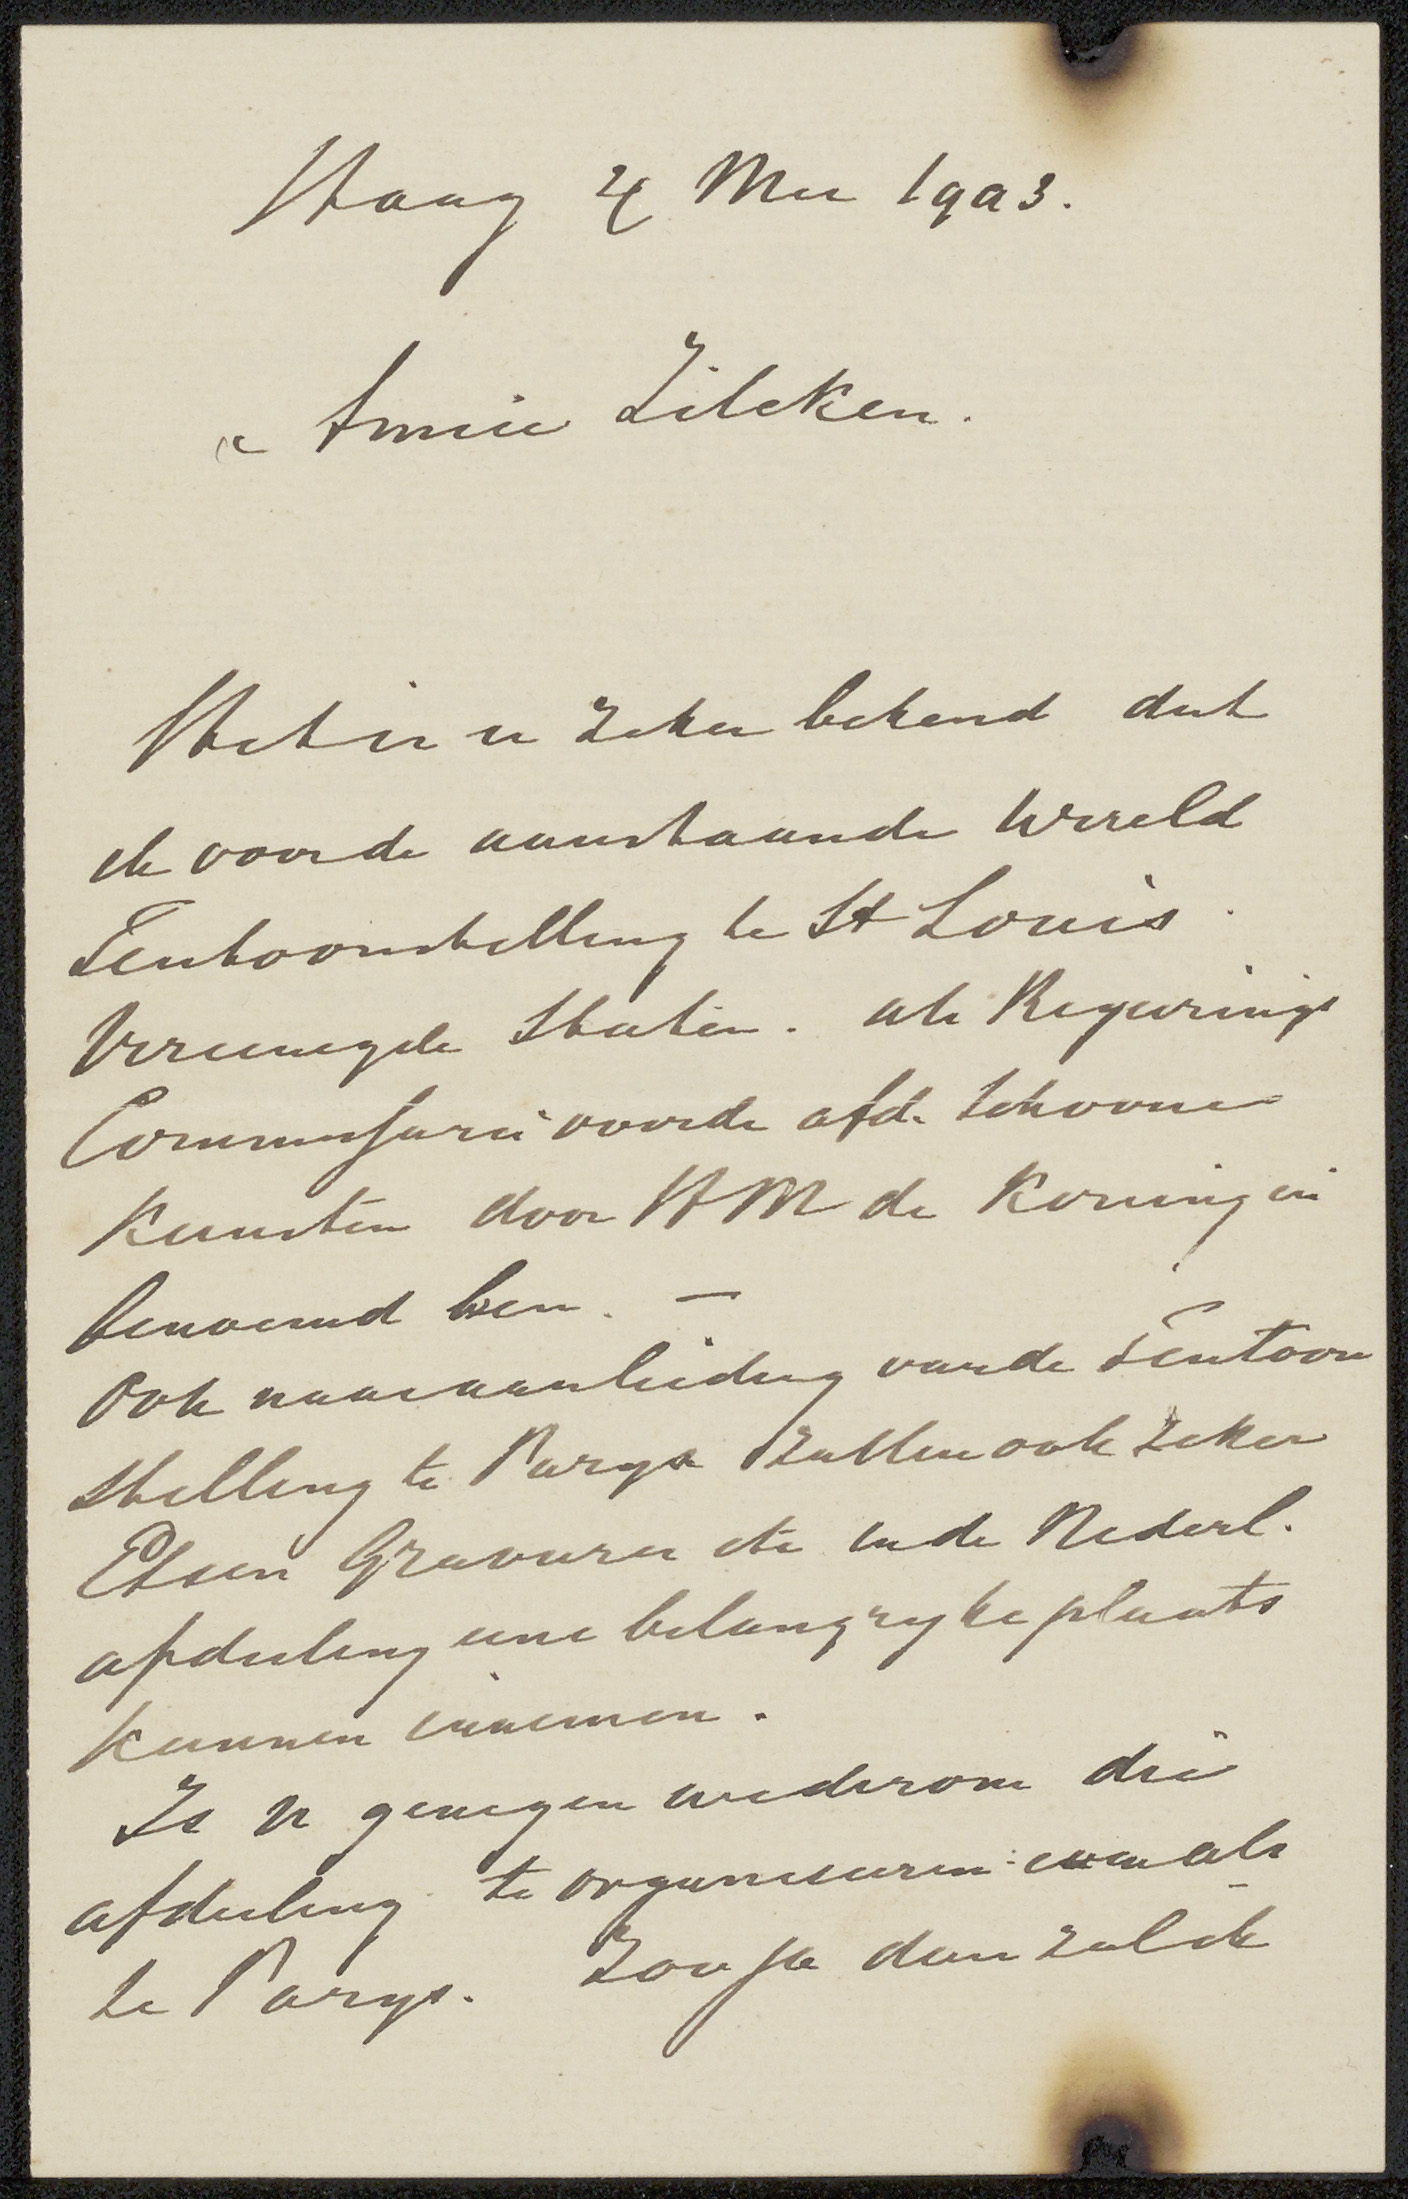 Haag 4 Mei 1903.
Amice Zilcken.
Het is u zeker bekend dat
ik voor de aanstaande Wereld
Tentoonstelling te St Louis.
Vereenigde Staten. als Regeerings
Commissaris voor de afd. Schoone
Kunsten door HM de Koningin
benoemd ben. —
Ook naar aanleiding van de Tentoon
stelling te Parys zullen ook zeker
Etsen Gravures etc in de Nederl.
afdeeling eene belangryke plaats
kunnen innemen.
Is U genegen wederom die
afdeeling te organiseeren even als
te Parys. Zoo ja dan zal ik